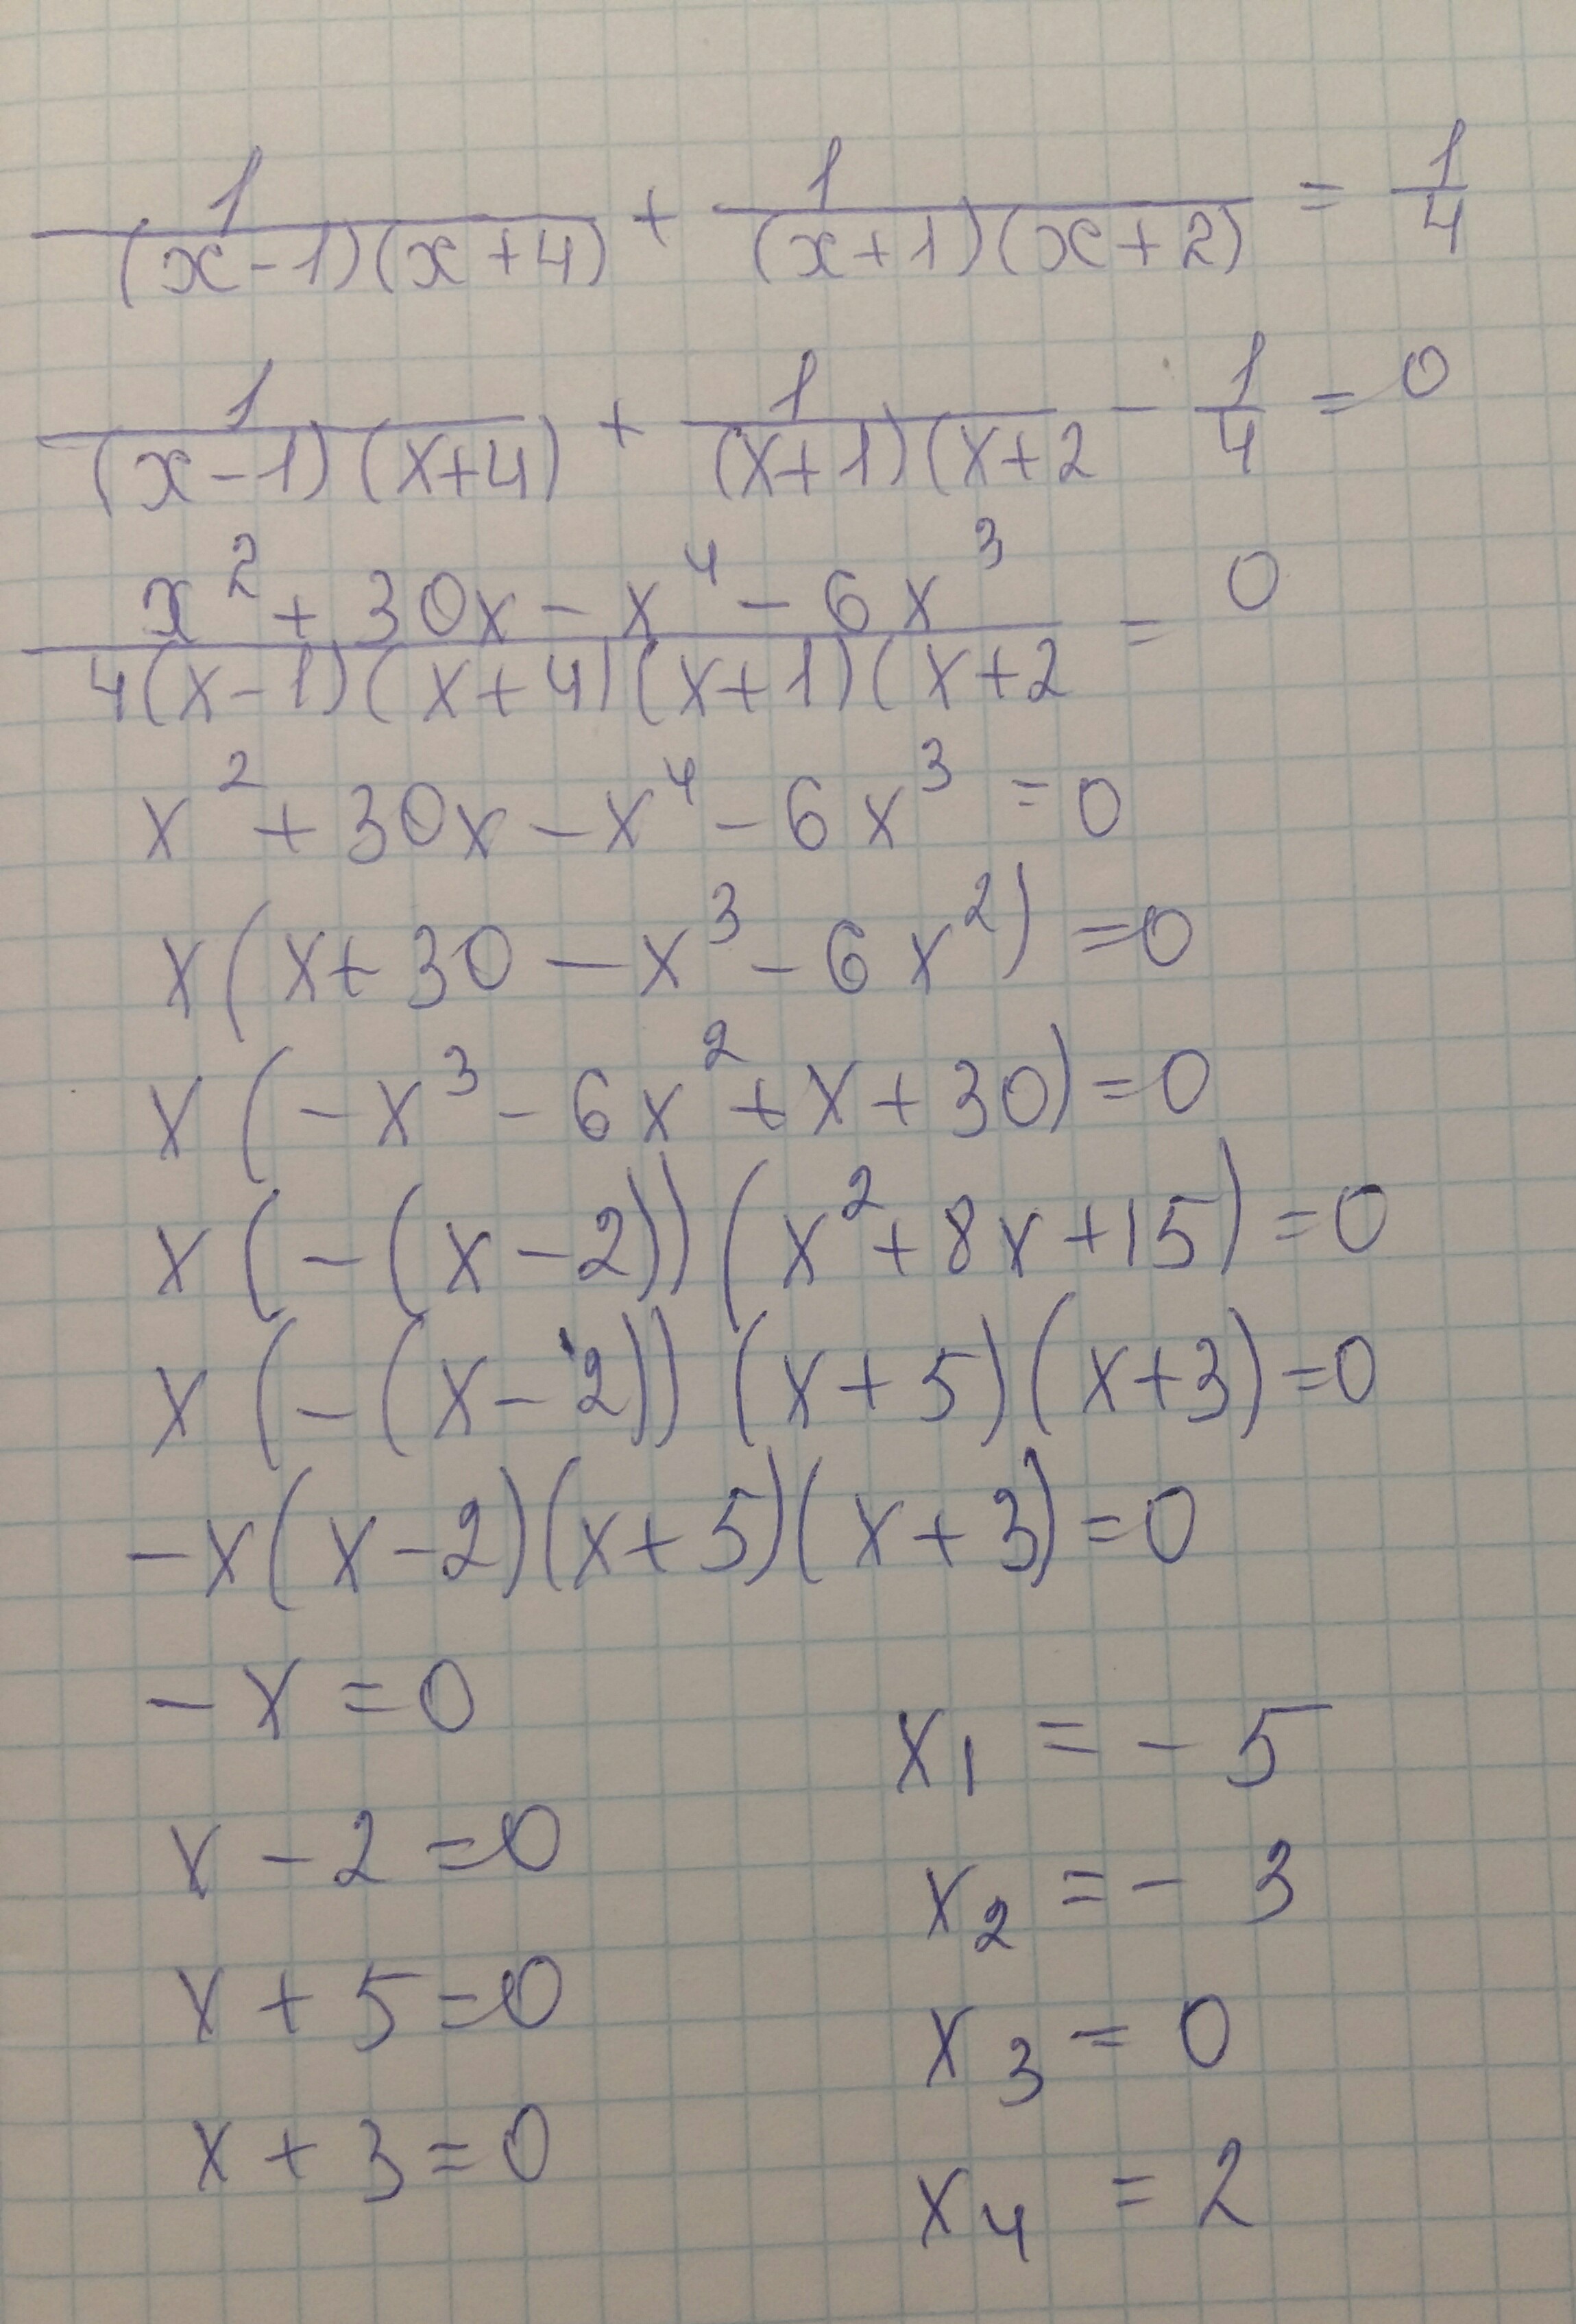 1/((x-1)(x+4)) + 1/((x+1)(x+2)) = 1/4
1/((x-1)(x+4)) + 1/((x+1)(x+2 - 1/4 = 0
x² + 30x - x⁴ - 6x³ / 4(x-1)(x+4)(x+1)(x+2 = 0
x² + 30x - x⁴ - 6x³ = 0
x(x + 30 - x³ - 6x²) = 0
x(-x³ - 6x² + x + 30) = 0
x(-(x-2))(x² + 8x + 15) = 0
x(-(x-2))(x+5)(x+3) = 0
-x(x-2)(x+5)(x+3) = 0
-x = 0
x - 2 = 0
x + 5 = 0
x + 3 = 0
x₁ = -5
x₂ = -3
x₃ = 0
x₄ = 2